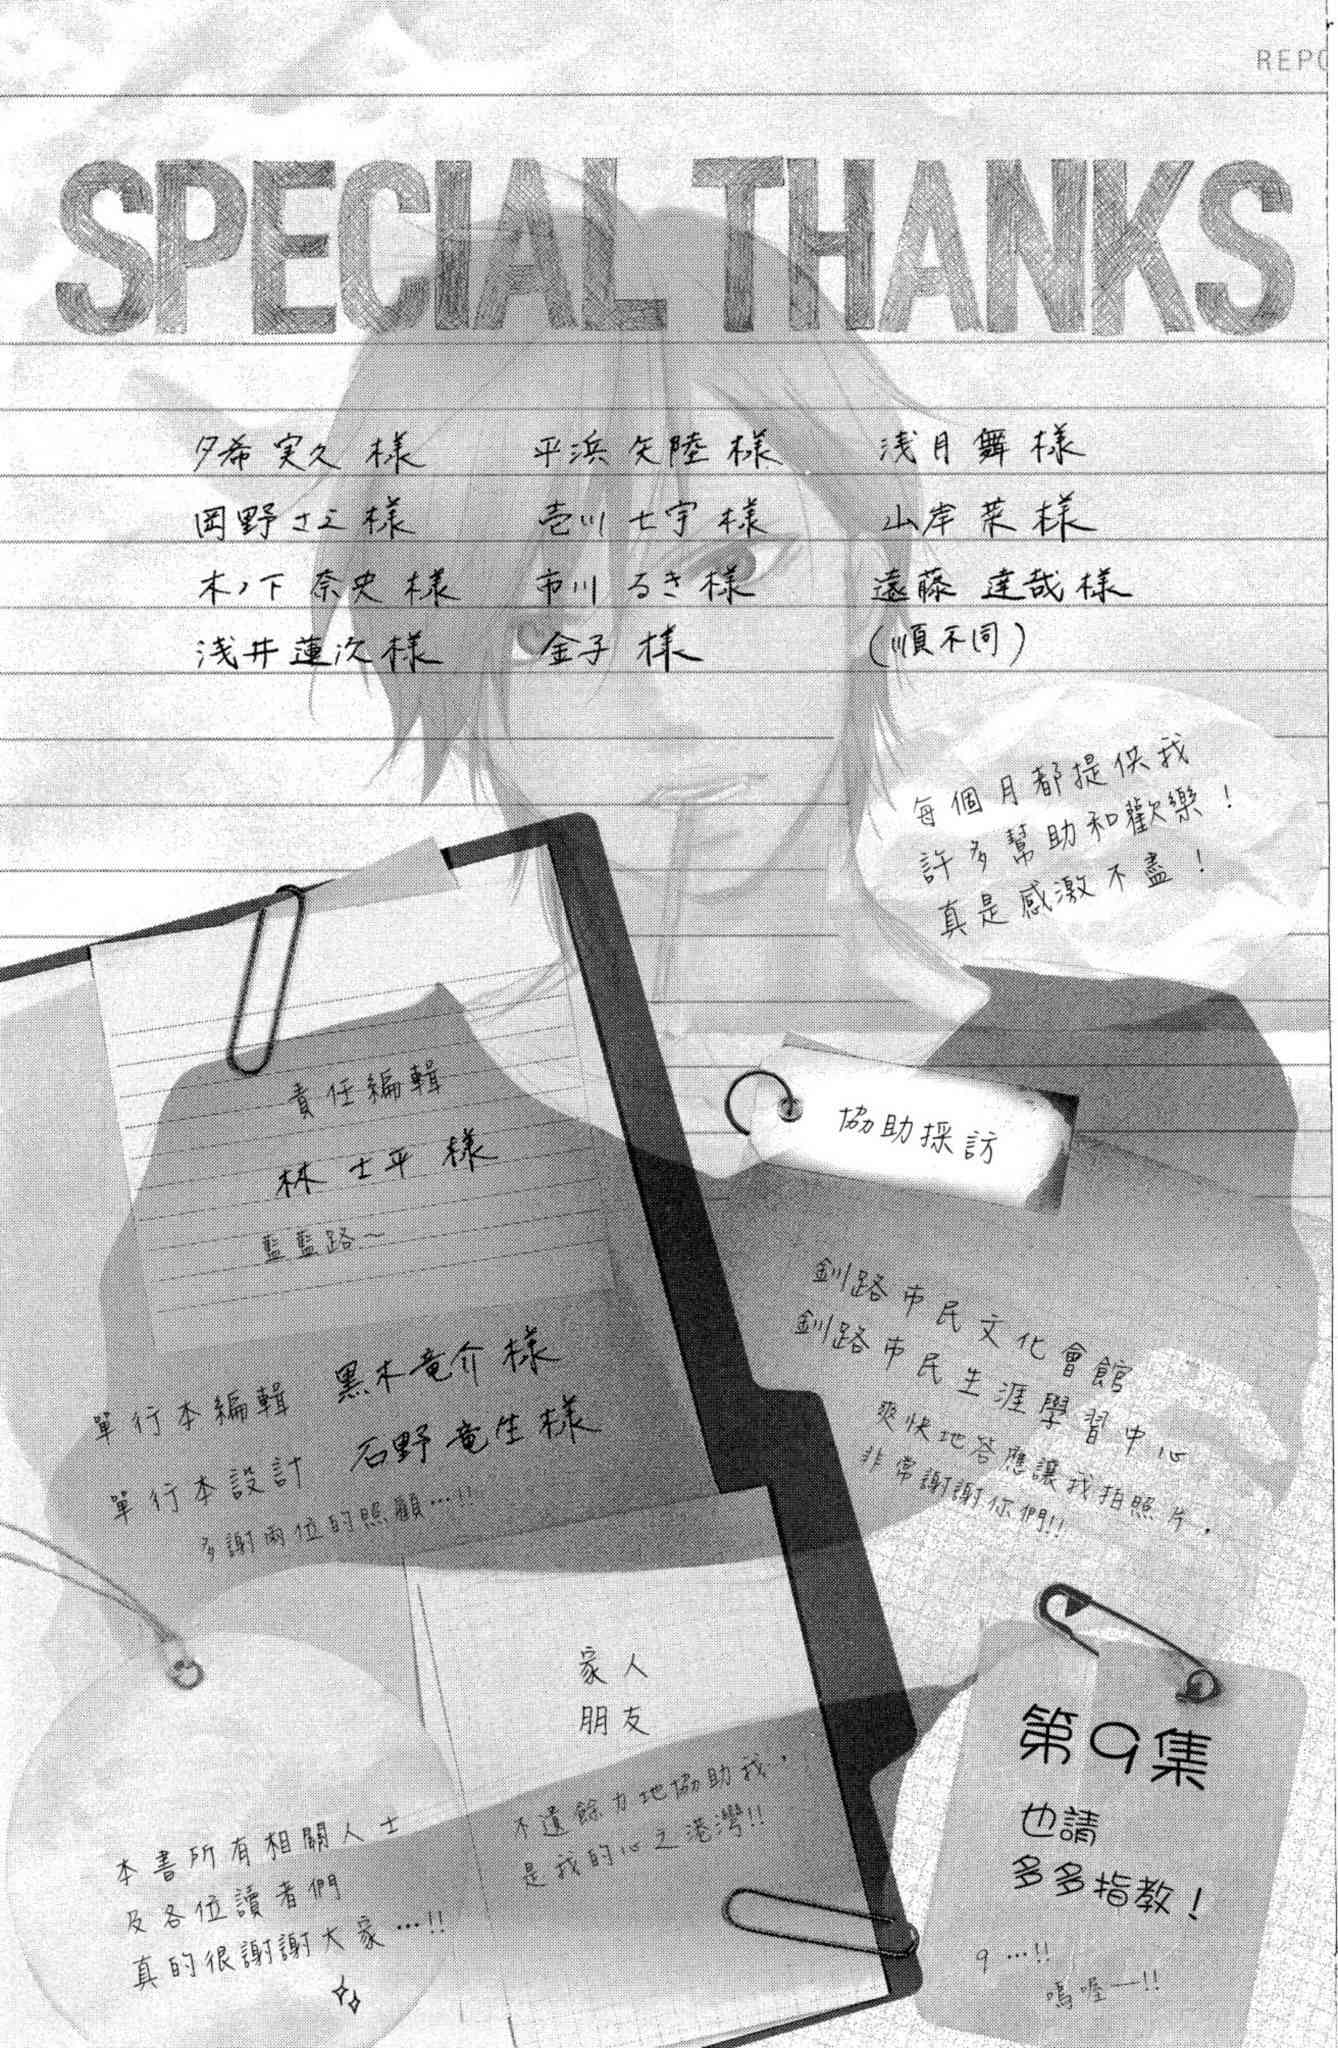 REPO
SPECIAL THANKS
夕希実久 様
平浜矢陸 様
浅月舞 様
岡野さえ 様
壱川七宇 様
山岸菜 様
木ノ下奈央 様
市川るき 様
遠藤達哉 様
浅井蓮次 様
金子 様
(順不同)
每個月都提供我
許多幫助和歡樂！
真是感激不盡！
責任編輯
林 士平 様
藍藍路～
協助採訪
釧路市民文化會館
釧路市民生涯學習中心
爽快地答應讓我拍照片，
非常謝謝你們!!
單行本編輯 黑木竜介 様
單行本設計 石野竜生 様
多謝兩位的照顧…!!
家人
朋友
不遺餘力地協助我…，
是我的心之港灣!!
本書所有相關人士
及各位讀者們
真的很謝謝大家…!!
第9集
也請
多多指教！
9…!!
嗚喔—!!